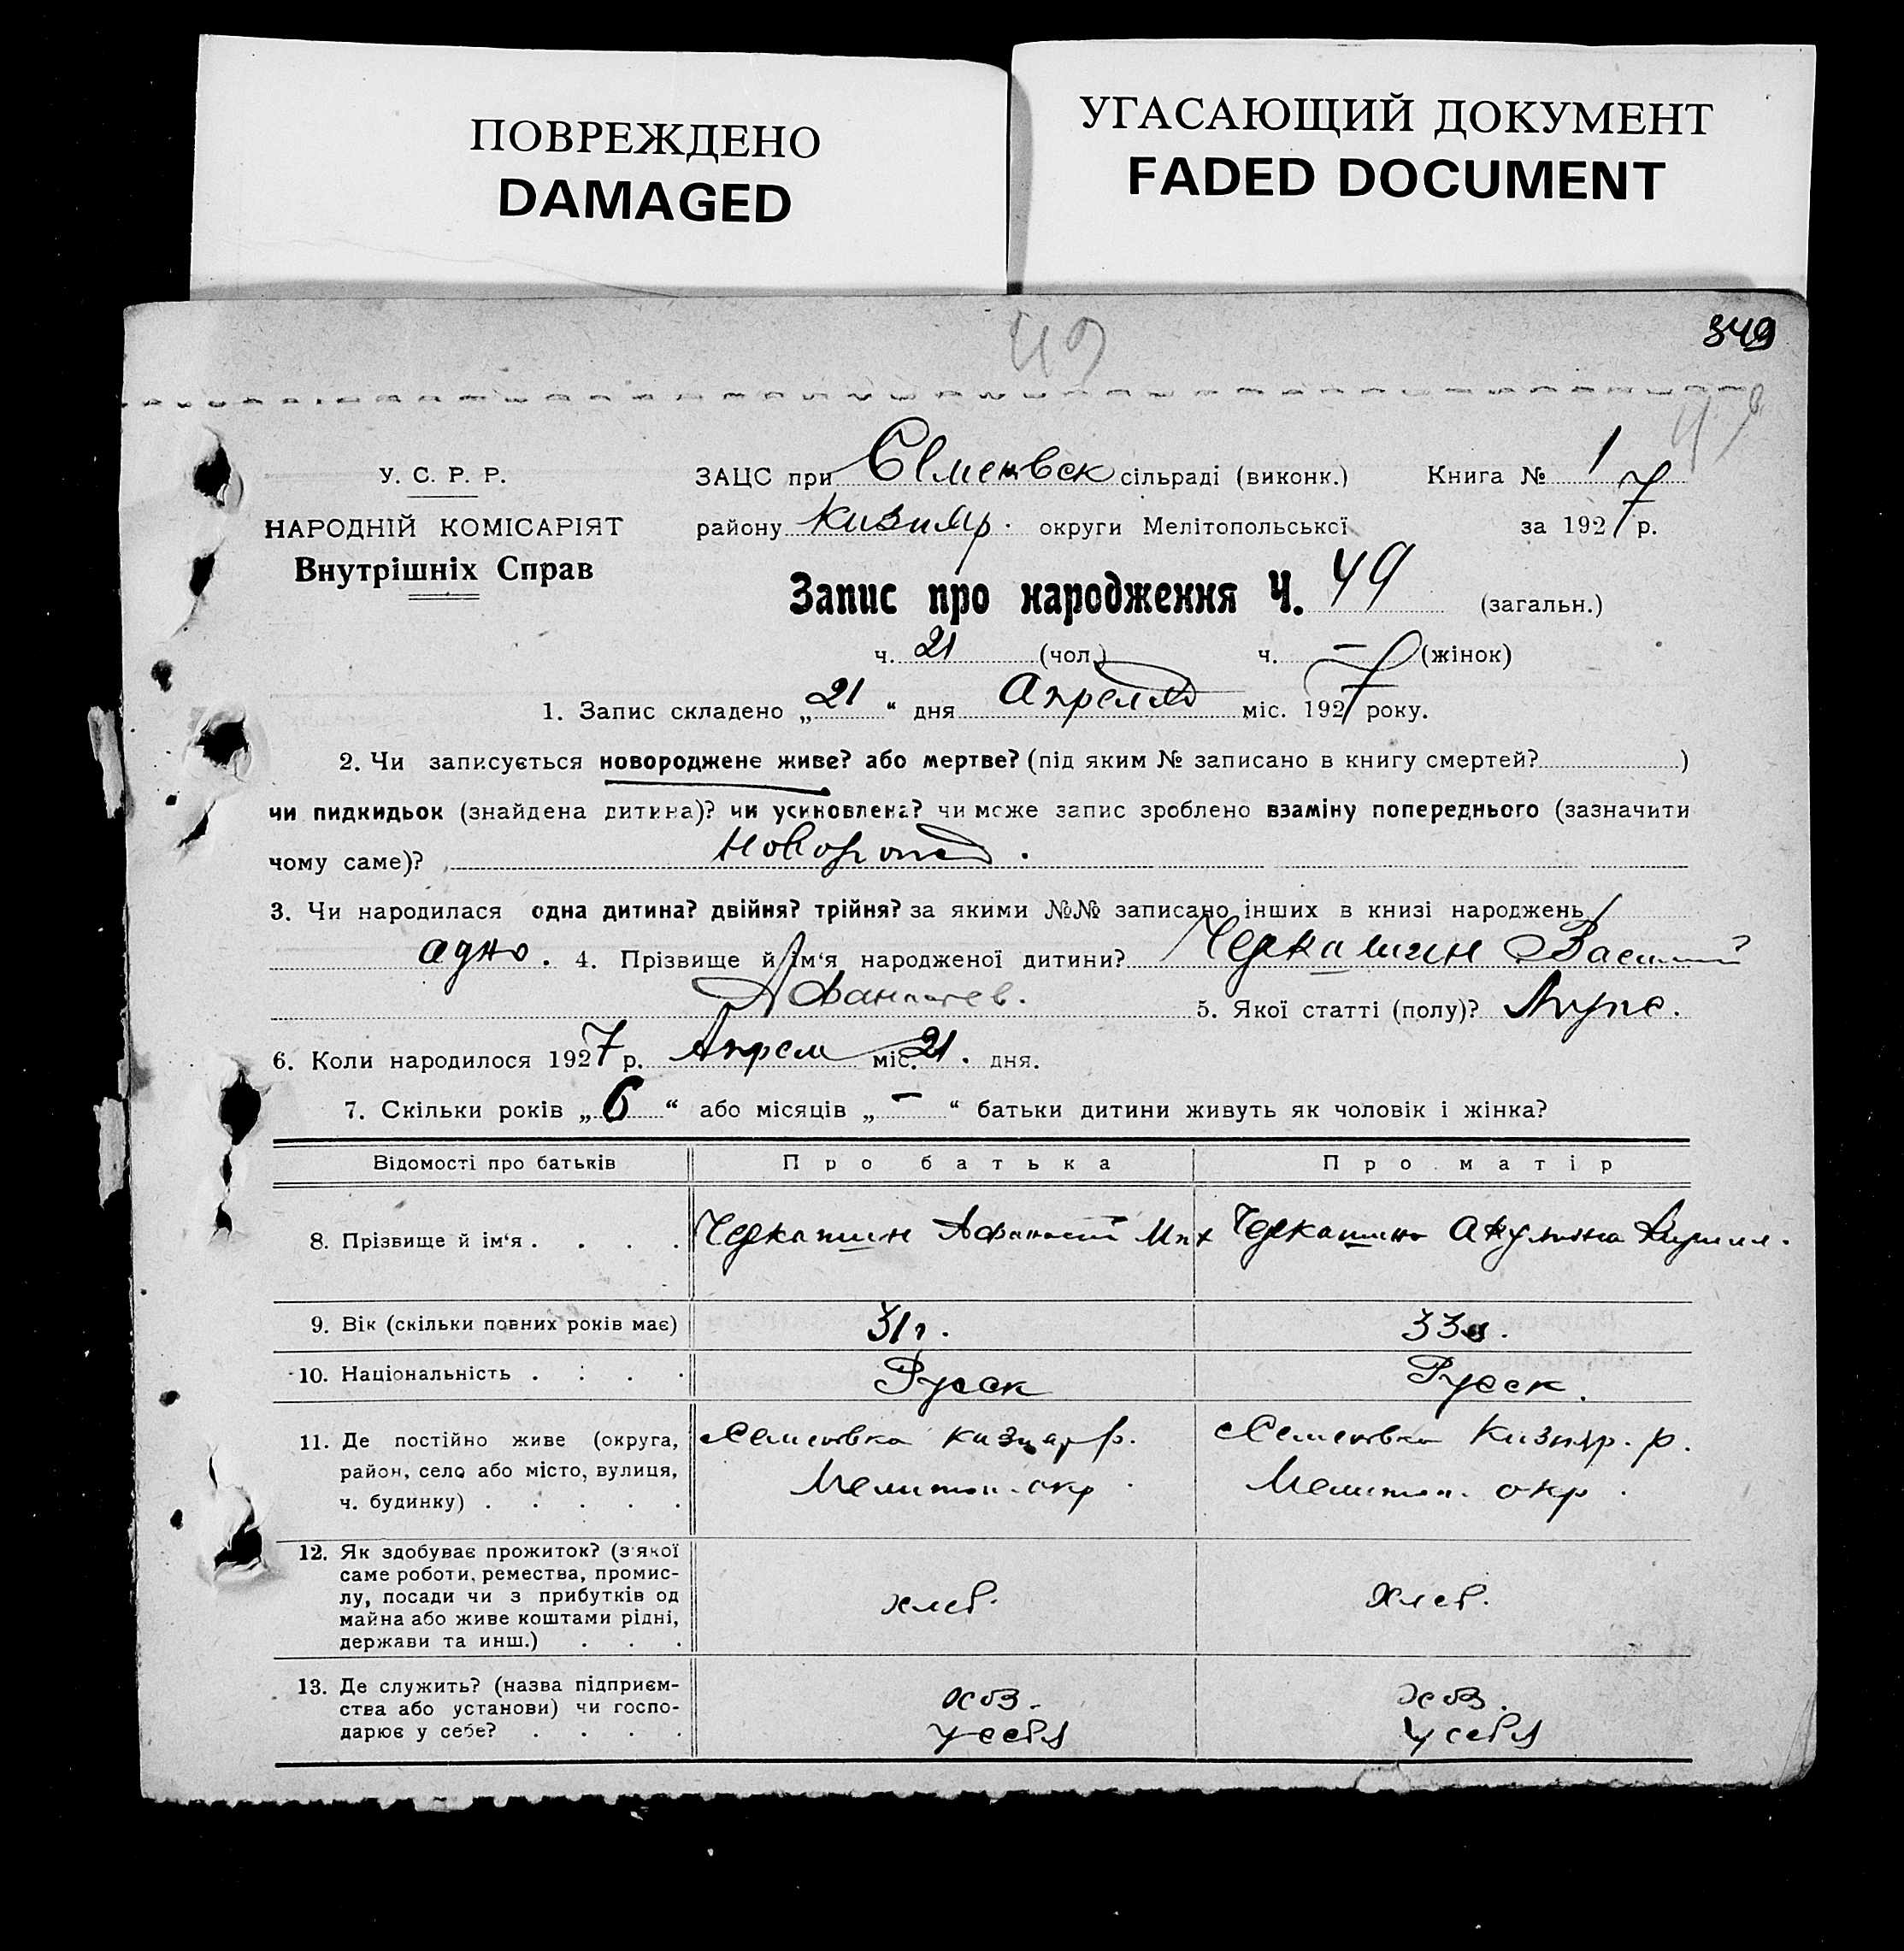 ПОВРЕЖДЕНО
DAMAGED
УГАСАЮЩИЙ ДОКУМЕНТ
FADED DOCUMENT
49
349
49
У. С. Р. Р.
НАРОДНІЙ КОМІСАРІЯТ
Внутрішніх Справ
ЗАЦС при Семеновск сільраді (виконк.) Книга № 1
району Кизияр. округи Мелітопольської за 1927 р.
Запис про народження Ч. 49 (загальн.)
ч. 21 (чол.) ч. – (жінок)
1. Запис складено „21“ дня Апреля міс. 1927 року.
2. Чи записується новороджене живе? або мертве? (під яким № записано в книгу смертей? )
чи пидкидьок (знайдена дитина)? чи усиновлена? чи може запис зроблено взаміну попереднього (зазначити
чому саме)? новорожд.
3. Чи народилася одна дитина? двійня? трійня? за якими №№ записано інших в книзі народжень
одно. 4. Прізвище й ім‘я народженої дитини? Черкашин Василий
Афанасьев. 5. Якої статті (полу)? Мужс.
6. Коли народилося 1927 р. Апрел міс. 21. дня.
7. Скільки років „6“ або місяців „–“ батьки дитини живуть як чоловік і жінка?
Відомості про батьків Про батька Про матір
8. Прізвище й ім‘я . . . . Черкашин Афанасий Мих Черкашина Акулина Кирилл.
9. Вік (скільки повних років має) 31 г. 33
10. Національність . . . . Русск Русск.
11. Де постійно живе (округа, Семеновка Кизияр р. Семеновка Кизияр. р.
район, село або місто, вулиця, Мелитоп. окр Мелитоп. окр.
ч. будинку) . . . . .
12. Як здобуває прожиток? (з якої
саме роботи, ремества, промис-
лу, посади чи з прибутків од хлеб. Хлеб.
майна або живе коштами рідні,
держави та инш.) . . .
13. Де служить? (назва підприєм-
ства або установи) чи госпо- хоз. хоз.
дарює у себе? . . . . у себя у себя